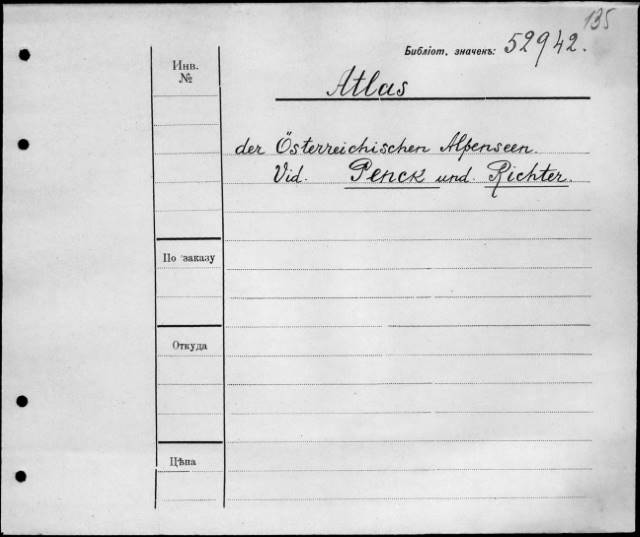 135
Библіот. значекъ: 52942.
Инв.
№
Atlas
der Österreichischen Alpenseen.
Vid. Penck und Richter.
По заказу
Откуда
Цѣна